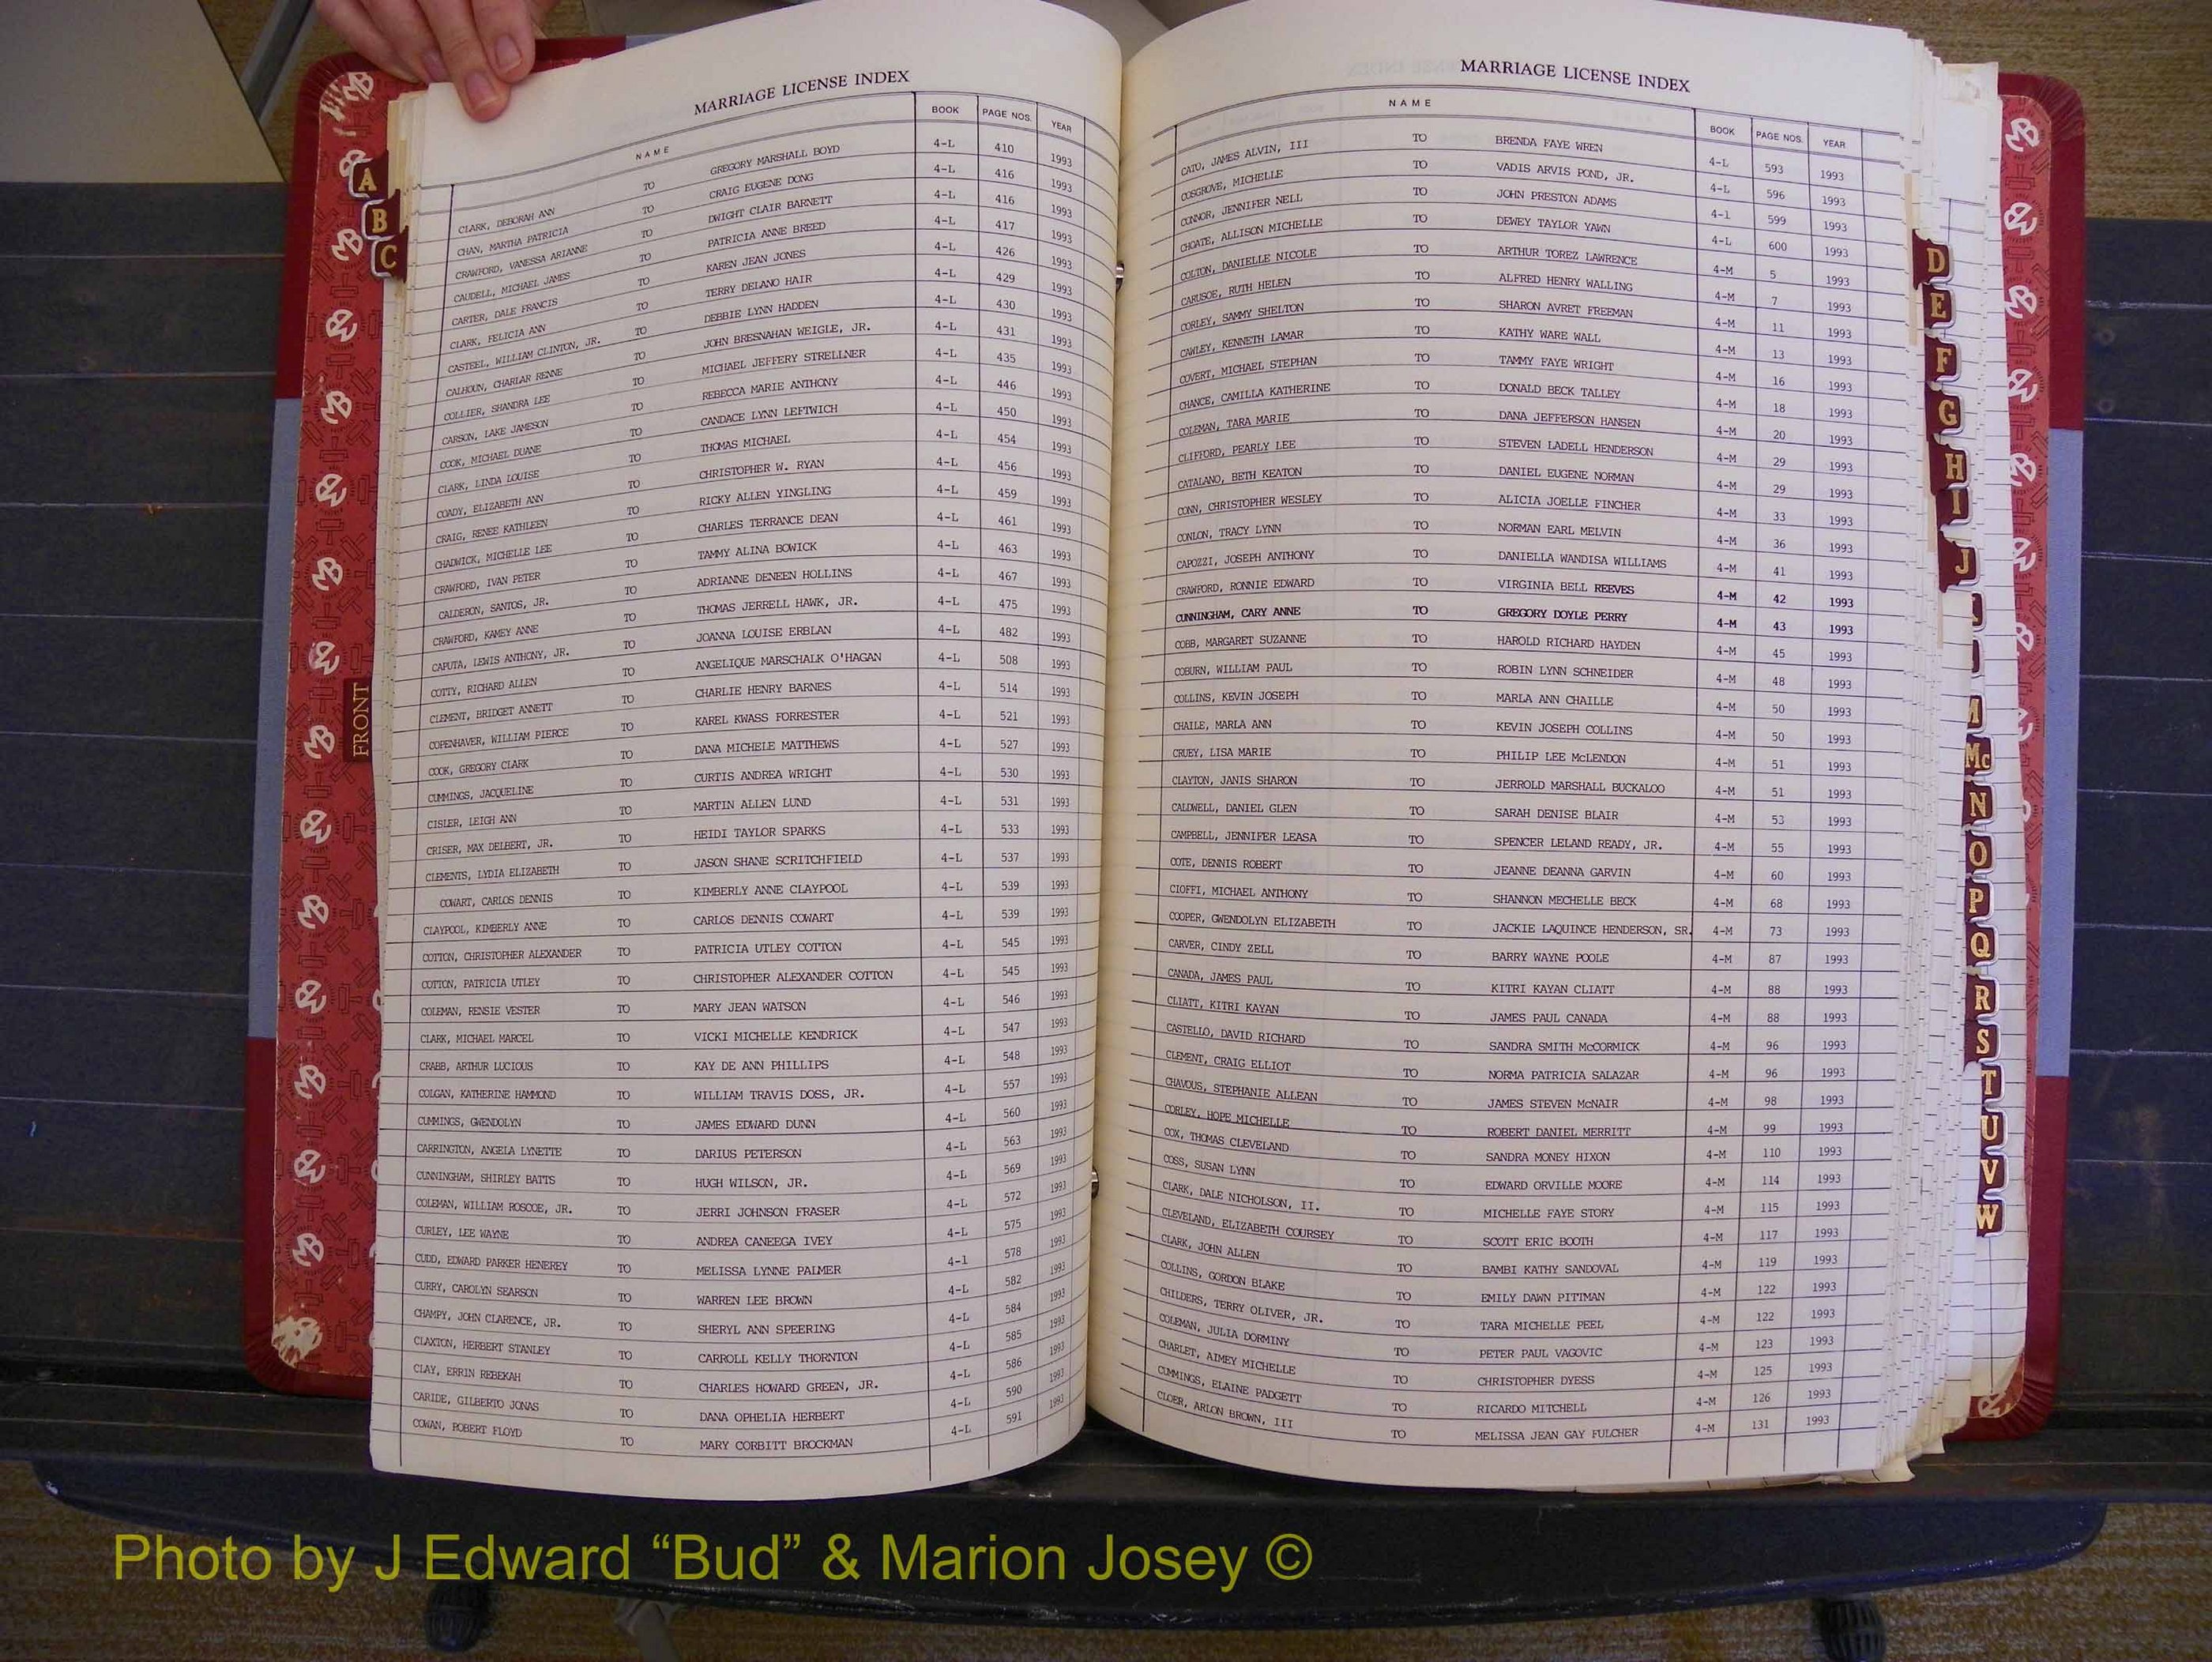 MARRIAGE LICENSE INDEX
NAME BOOK PAGE NOS. YEAR
CLARK, DEBORAH ANN TO GREGORY MARSHALL BOYD 4-L 410 1993
CHAN, MARTHA PATRICIA TO CRAIG EUGENE DONG 4-L 416 1993
CRAWFORD, VANESSA ARIANNE TO DWIGHT CLAIR BARNETT 4-L 416 1993
CAUDELL, MICHAEL JAMES TO PATRICIA ANNE BREED 4-L 417 1993
CARTER, DALE FRANCIS TO KAREN JEAN JONES 4-L 426 1993
CLARK, FELICIA ANN TO TERRY DELANO HAIR 4-L 429 1993
CASTEEL, WILLIAM CLINTON, JR. TO DEBBIE LYNN HADDEN 4-L 430 1993
CALHOUN, CHARLAR RENNE TO JOHN BRESNAHAN WEIGLE, JR. 4-L 431 1993
COLLIER, SHANDRA LEE TO MICHAEL JEFFERY STRELLNER 4-L 435 1993
CARSON, LAKE JAMESON TO REBECCA MARIE ANTHONY 4-L 446 1993
COOK, MICHAEL DUANE TO CANDACE LYNN LEFTWICH 4-L 450 1993
CLARK, LINDA LOUISE TO THOMAS MICHAEL 4-L 454 1993
COADY, ELIZABETH ANN TO CHRISTOPHER W. RYAN 4-L 456 1993
CRAIG, RENEE KATHLEEN TO RICKY ALLEN YINGLING 4-L 459 1993
CHADWICK, MICHELLE LEE TO CHARLES TERRANCE DEAN 4-L 461 1993
CRAWFORD, IVAN PETER TO TAMMY ALINA BOWICK 4-L 463 1993
CALDERON, SANTOS, JR. TO ADRIANNE DENEEN HOLLINS 4-L 467 1993
CRAWFORD, KAMEY ANNE TO THOMAS JERRELL HAWK, JR. 4-L 475 1993
CAPUTA, LEWIS ANTHONY, JR. TO JOANNA LOUISE ERBLAN 4-L 482 1993
COTTY, RICHARD ALLEN TO ANGELIQUE MARSCHALK O'HAGAN 4-L 508 1993
CLEMENT, BRIDGET ANNETT TO CHARLIE HENRY BARNES 4-L 514 1993
COPENHAVER, WILLIAM PIERCE TO KAREL KWASS FORRESTER 4-L 521 1993
COOK, GREGORY CLARK TO DANA MICHELE MATTHEWS 4-L 527 1993
CUMMINGS, JACQUELINE TO CURTIS ANDREA WRIGHT 4-L 530 1993
CISLER, LEIGH ANN TO MARTIN ALLEN LUND 4-L 531 1993
CRISER, MAX DELBERT, JR. TO HEIDI TAYLOR SPARKS 4-L 533 1993
CLEMENTS, LYDIA ELIZABETH TO JASON SHANE SCRITCHFIELD 4-L 537 1993
COWART, CARLOS DENNIS TO KIMBERLY ANNE CLAYPOOL 4-L 539 1993
CLAYPOOL, KIMBERLY ANNE TO CARLOS DENNIS COWART 4-L 539 1993
COTTON, CHRISTOPHER ALEXANDER TO PATRICIA UTLEY COTTON 4-L 545 1993
COTTON, PATRICIA UTLEY TO CHRISTOPHER ALEXANDER COTTON 4-L 545 1993
COLEMAN, RENSIE VESTER TO MARY JEAN WATSON 4-L 546 1993
CLARK, MICHAEL MARCEL TO VICKI MICHELLE KENDRICK 4-L 547 1993
CRABB, ARTHUR LUCIOUS TO KAY DE ANN PHILLIPS 4-L 548 1993
COLGAN, KATHERINE HAMMOND TO WILLIAM TRAVIS DOSS, JR. 4-L 557 1993
CUMMINGS, GWENDOLYN TO JAMES EDWARD DUNN 4-L 560 1993
CARRINGTON, ANGELA LYNETTE TO DARIUS PETERSON 4-L 563 1993
CUNNINGHAM, SHIRLEY BATTS TO HUGH WILSON, JR. 4-L 569 1993
COLEMAN, WILLIAM ROSCOE, JR. TO JERRI JOHNSON FRASER 4-L 572 1993
CURLEY, LEE WAYNE TO ANDREA CANEEGA IVEY 4-L 575 1993
CUDD, EDWARD PARKER HENEREY TO MELISSA LYNNE PALMER 4-1 578 1993
CURRY, CAROLYN SEARSON TO WARREN LEE BROWN 4-L 582 1993
CHAMPY, JOHN CLARENCE, JR. TO SHERYL ANN SPEERING 4-L 584 1993
CLAXTON, HERBERT STANLEY TO CARROLL KELLY THORNTON 4-L 585 1993
CLAY, ERRIN REBEKAH TO CHARLES HOWARD GREEN, JR. 4-L 586 1993
CARIDE, GILBERTO JONAS TO DANA OPHELIA HERBERT 4-L 590 1993
COWAN, ROBERT FLOYD TO MARY CORBITT BROCKMAN 4-L 591 1993
MARRIAGE LICENSE INDEX
NAME BOOK PAGE NOS. YEAR
CATO, JAMES ALVIN, III TO BRENDA FAYE WREN 4-L 593 1993
COSGROVE, MICHELLE TO VADIS ARVIS POND, JR. 4-L 596 1993
CONNOR, JENNIFER NELL TO JOHN PRESTON ADAMS 4-1 599 1993
CHOATE, ALLISON MICHELLE TO DEWEY TAYLOR YAWN 4-L 600 1993
COLTON, DANIELLE NICOLE TO ARTHUR TOREZ LAWRENCE 4-M 5 1993
CARUSOE, RUTH HELEN TO ALFRED HENRY WALLING 4-M 7 1993
CORLEY, SAMMY SHELTON TO SHARON AVRET FREEMAN 4-M 11 1993
CAWLEY, KENNETH LAMAR TO KATHY WARE WALL 4-M 13 1993
COVERT, MICHAEL STEPHAN TO TAMMY FAYE WRIGHT 4-M 16 1993
CHANCE, CAMILLA KATHERINE TO DONALD BECK TALLEY 4-M 18 1993
COLEMAN, TARA MARIE TO DANA JEFFERSON HANSEN 4-M 20 1993
CLIFFORD, PEARLY LEE TO STEVEN LADELL HENDERSON 4-M 29 1993
CATALANO, BETH KEATON TO DANIEL EUGENE NORMAN 4-M 29 1993
CONN, CHRISTOPHER WESLEY TO ALICIA JOELLE FINCHER 4-M 33 1993
CONLON, TRACY LYNN TO NORMAN EARL MELVIN 4-M 36 1993
CAPOZZI, JOSEPH ANTHONY TO DANIELLA WANDISA WILLIAMS 4-M 41 1993
CRAWFORD, RONNIE EDWARD TO VIRGINIA BELL REEVES 4-M 42 1993
CUNNINGHAM, CARY ANNE TO GREGORY DOYLE PERRY 4-M 43 1993
COBB, MARGARET SUZANNE TO HAROLD RICHARD HAYDEN 4-M 45 1993
COBURN, WILLIAM PAUL TO ROBIN LYNN SCHNEIDER 4-M 48 1993
COLLINS, KEVIN JOSEPH TO MARLA ANN CHAILLE 4-M 50 1993
CHAILE, MARLA ANN TO KEVIN JOSEPH COLLINS 4-M 50 1993
CRUEY, LISA MARIE TO PHILIP LEE McLENDON 4-M 51 1993
CLAYTON, JANIS SHARON TO JERROLD MARSHALL BUCKALOO 4-M 51 1993
CALDWELL, DANIEL GLEN TO SARAH DENISE BLAIR 4-M 53 1993
CAMPBELL, JENNIFER LEASA TO SPENCER LELAND READY, JR. 4-M 55 1993
COTE, DENNIS ROBERT TO JEANNE DEANNA GARVIN 4-M 60 1993
CIOFFI, MICHAEL ANTHONY TO SHANNON MECHELLE BECK 4-M 68 1993
COOPER, GWENDOLYN ELIZABETH TO JACKIE LAQUINCE HENDERSON, SR. 4-M 73 1993
CARVER, CINDY ZELL TO BARRY WAYNE POOLE 4-M 87 1993
CANADA, JAMES PAUL TO KITRI KAYAN CLIATT 4-M 88 1993
CLIATT, KITRI KAYAN TO JAMES PAUL CANADA 4-M 88 1993
CASTELLO, DAVID RICHARD TO SANDRA SMITH McCORMICK 4-M 96 1993
CLEMENT, CRAIG ELLIOT TO NORMA PATRICIA SALAZAR 4-M 96 1993
CHAVOUS, STEPHANIE ALLEAN TO JAMES STEVEN McNAIR 4-M 98 1993
CORLEY, HOPE MICHELLE TO ROBERT DANIEL MERRITT 4-M 99 1993
COX, THOMAS CLEVELAND TO SANDRA MONEY HIXON 4-M 110 1993
COSS, SUSAN LYNN TO EDWARD ORVILLE MOORE 4-M 114 1993
CLARK, DALE NICHOLSON, II. TO MICHELLE FAYE STORY 4-M 115 1993
CLEVELAND, ELIZABETH COURSEY TO SCOTT ERIC BOOTH 4-M 117 1993
CLARK, JOHN ALLEN TO BAMBI KATHY SANDOVAL 4-M 119 1993
COLLINS, GORDON BLAKE TO EMILY DAWN PITTMAN 4-M 122 1993
CHILDERS, TERRY OLIVER, JR. TO TARA MICHELLE PEEL 4-M 122 1993
COLEMAN, JULIA DORMINY TO PETER PAUL VAGOVIC 4-M 123 1993
CHARLET, AIMEY MICHELLE TO CHRISTOPHER DYESS 4-M 125 1993
CUMMINGS, ELAINE PADGETT TO RICARDO MITCHELL 4-M 126 1993
CLOER, ARLON BROWN, III TO MELISSA JEAN GAY FULCHER 4-M 131 1993
A
B
C
FRONT
D
E
F
G
H
I
J
M
Mc
N
O
P
Q
R
S
T
U
V
W
Photo by J Edward “Bud” & Marion Josey ©